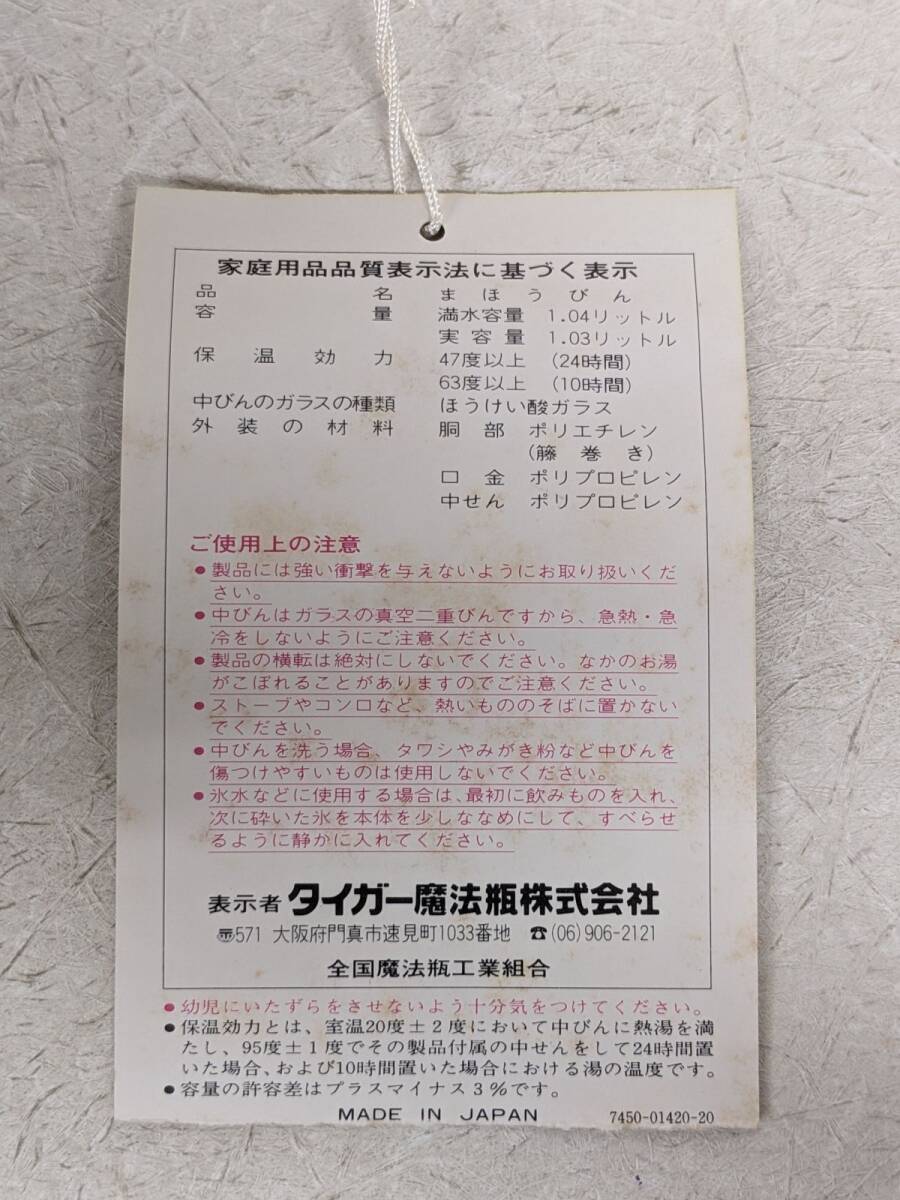 家庭用品品質表示法に基づく表示
品名 まほうびん
容量 満水容量 1.04リットル
実容量 1.03リットル
保温効力 47度以上 (24時間)
63度以上 (10時間)
中びんのガラスの種類 ほうけい酸ガラス
外装の材料 胴部 ポリエチレン
(籐巻き)
口金 ポリプロピレン
中せん ポリプロピレン
ご使用上の注意
●製品には強い衝撃を与えないようにお取り扱いくだ
さい。
●中びんはガラスの真空二重びんですから、急熱・急
冷をしないようにご注意ください。
●製品の横転は絶対にしないでください。なかのお湯
がこぼれることがありますのでご注意ください。
●ストーブやコンロなど、熱いもののそばに置かない
でください。
●中びんを洗う場合、タワシやみがき粉など中びんを
傷つけやすいものは使用しないでください。
●氷水などに使用する場合は、最初に飲みものを入れ、
次に砕いた氷を本体を少しななめにして、すべらせ
るように静かに入れてください。
表示者 タイガー魔法瓶株式会社
〠571 大阪府門真市速見町1033番地 ☎(06)906-2121
全国魔法瓶工業組合
●幼児にいたずらをさせないよう十分気をつけてください。
●保温効力とは、室温20度±2度において中びんに熱湯を満
たし、95度±1度でその製品付属の中せんをして24時間置
いた場合、および10時間置いた場合における湯の温度です。
●容量の許容差はプラスマイナス3%です。
MADE IN JAPAN 7450-01420-20